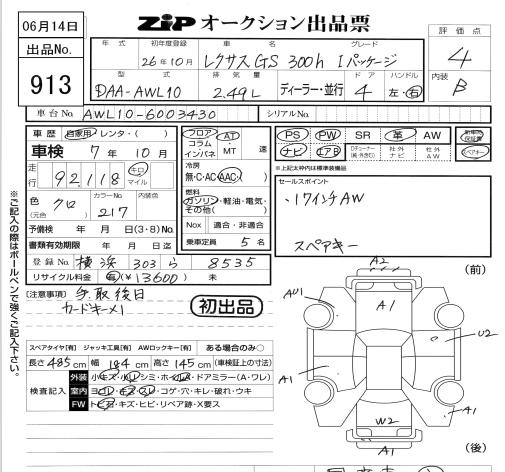 06月14日
ZIP オークション出品票
出品No.
913
評価点
4
内装
B
年式 初年度登録 車名 グレード
26年10月 レクサスGS 300h Iパッケージ
型式 排気量 ディーラー・並行 ドア ハンドル
DAA-AWL10 2.49L 4 左・右
車台No. AWL10-6003430 シリアルNo.
車歴 自家用 レンタ・( )
車検 7年 10月
走行 92,118 キロ マイル
色 クロ (元色) カラーNo. 217 内装色
予備検 年 月 日(3・8)No.
書類有効期限 年 月 日迄
登録No. 横浜 303 ら 8535
リサイクル料金 有(¥13600) 未
フロア コラム インパネ AT MT 速
冷房
無・C・AC・AAC・( )
燃料
ガソリン・軽油・電気・その他( )
Nox 適合・非適合
乗車定員 5名
PS PW SR 革 AW
ナビ エアB 社外ナビ 社外AW
スペアキー
※上記太枠内は標準装備品
セールスポイント
・17インチAW
スペアキー
[注意事項] 予取後日
カードキー×1
初出品
スペアタイヤ[有] ジャッキ工具[有] AWロックキー[有] ある場合のみ○
長さ485cm 幅184cm 高さ145cm (車検証上の寸法)
検査記入
外装 小キズ・小凹・シミ・ホイール・ドアミラー(A・ワレ)
室内 ヨゴレ・キズ・スレ・コゲ・穴・キレ・破れ・ウキ
FW トビ石・キズ・ヒビ・リペア跡・X要ス
※ご記入の際はボールペンで強くご記入下さい。
(前)
A2
AU1
A1
U2
A1
A1
W2
A1
(後)